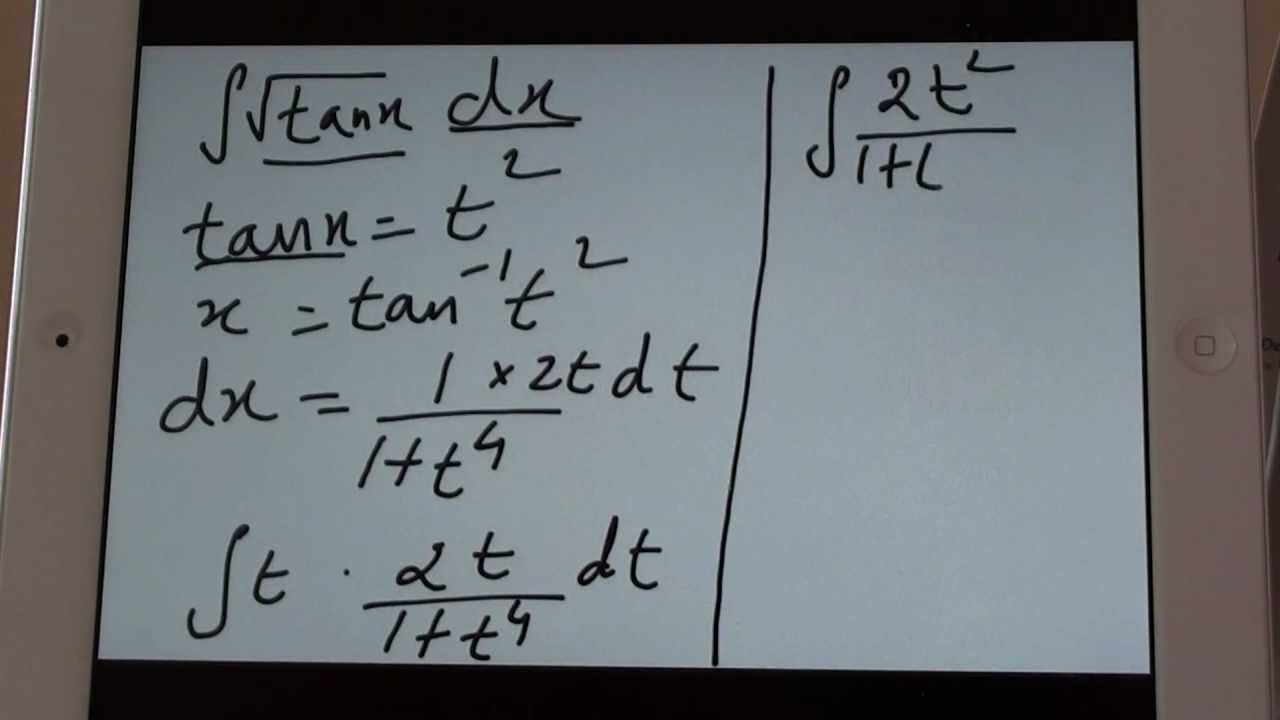 ∫√tanx dx
tanx = t²
x = tan⁻¹t²
dx = 1/(1+t⁴) × 2t dt
∫t · 2t/(1+t⁴) dt
∫2t²/(1+t